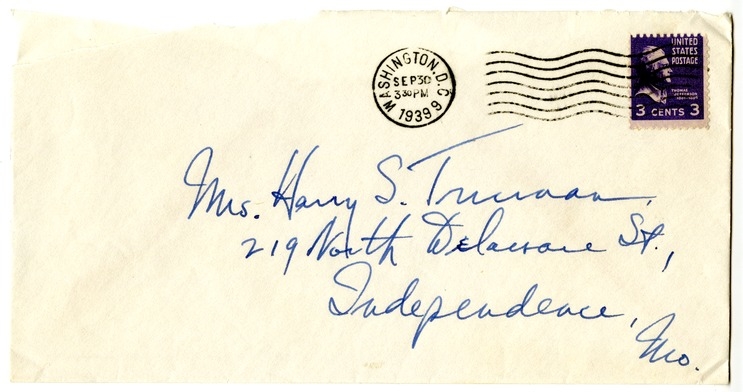 WASHINGTON, D.C.
SEP 30
3 30 PM
1939
9
UNITED
STATES
POSTAGE
THOMAS
JEFFERSON
3 CENTS 3
Mrs. Harry S. Truman,
219 North Delaware St.,
Independence,
Mo.